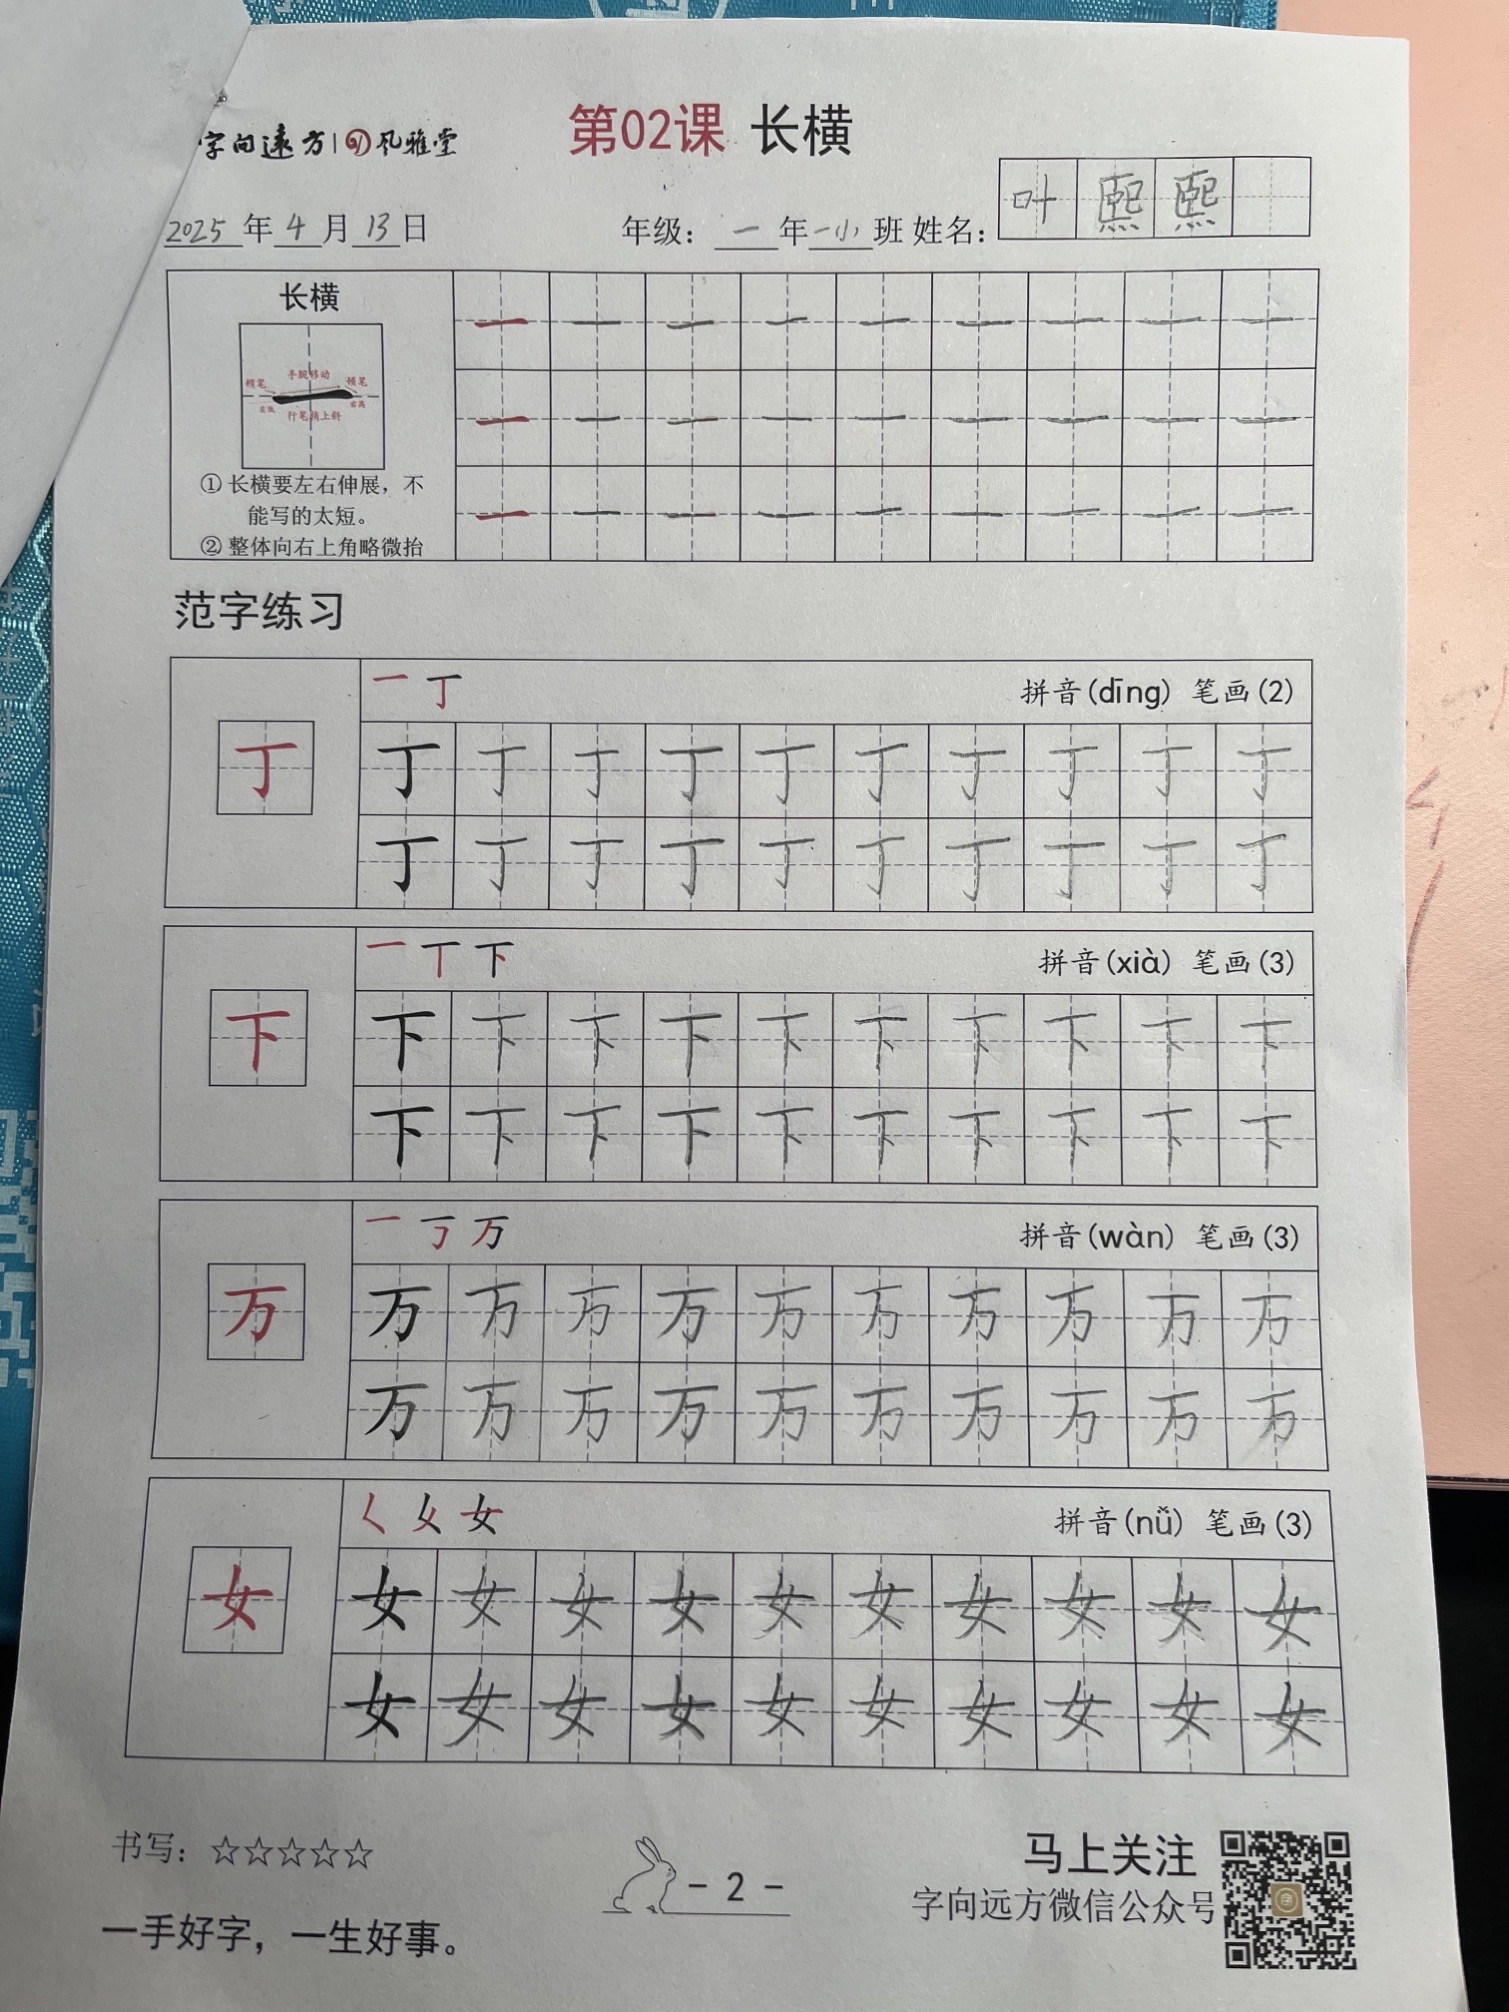 字向遠方 | 风雅堂
第02课 长横
2025年4月13日 年级：一年一小班 姓名：叶熙熙
长横
顿笔 手腕移动 顿笔
左低 行笔稍上斜 右高
①长横要左右伸展，不
能写的太短。
②整体向右上角略微抬
一 一 一 一 一 一 一 一 一
一 一 一 一 一 一 一 一 一
一 一 一 一 一 一 一 一 一
范字练习
一 丁 拼音(dīng) 笔画(2)
丁
丁 丁 丁 丁 丁 丁 丁 丁 丁 丁
丁 丁 丁 丁 丁 丁 丁 丁 丁 丁
一 丅 下 拼音(xià) 笔画(3)
下
下 下 下 下 下 下 下 下 下 下
下 下 下 下 下 下 下 下 下 下
一 丂 万 拼音(wàn) 笔画(3)
万
万 万 万 万 万 万 万 万 万 万
万 万 万 万 万 万 万 万 万 万
𡿨 女 拼音(nǚ) 笔画(3)
女
女 女 女 女 女 女 女 女 女 女
女 女 女 女 女 女 女 女 女 女
书写：☆☆☆☆☆
一手好字，一生好事。
- 2 -
马上关注
字向远方微信公众号